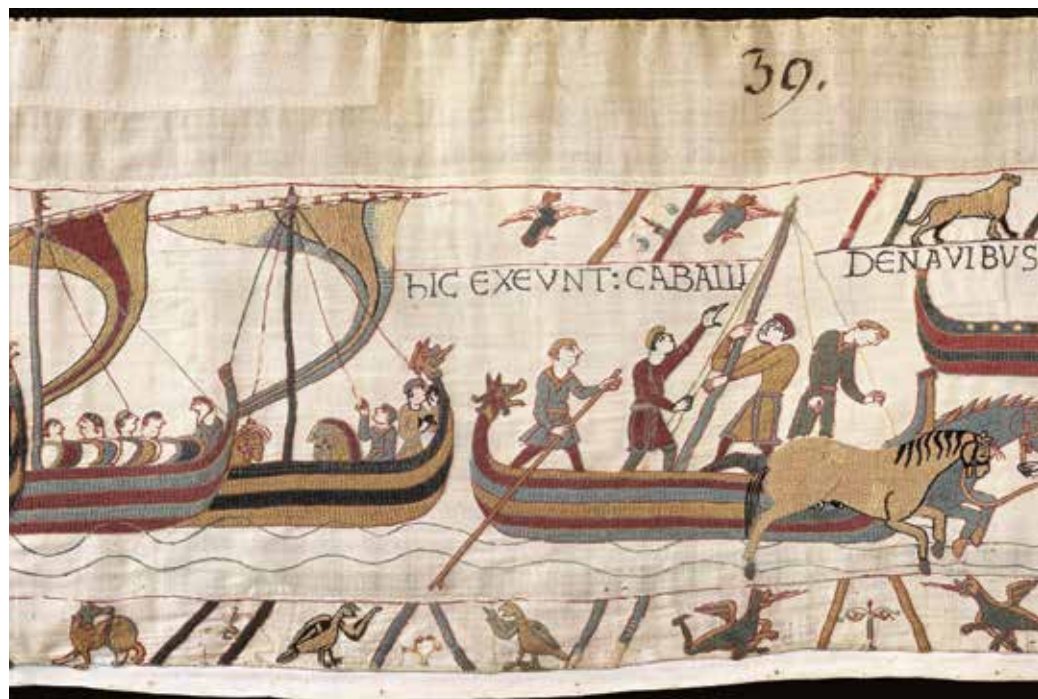 39.
hIC EXEVNT: CABALLI
DENAVIBUS